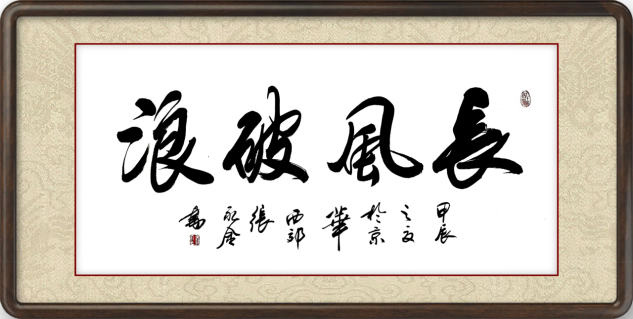 長風破浪
甲辰之夏於京華西部張永金書